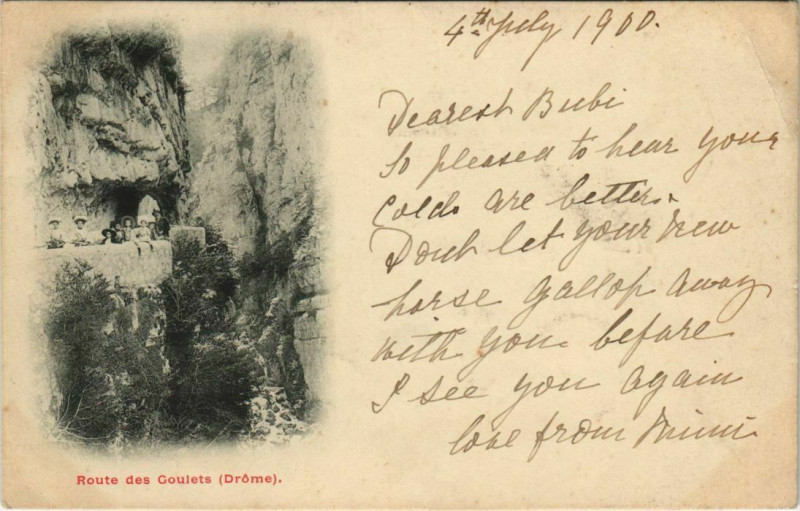 4th July 1900.
Dearest Bubi
So pleased to hear your
colds are better.
Dont let your new
horse gallop away
with you before
I see you again
love from Mimi
Route des Goulets (Drôme).